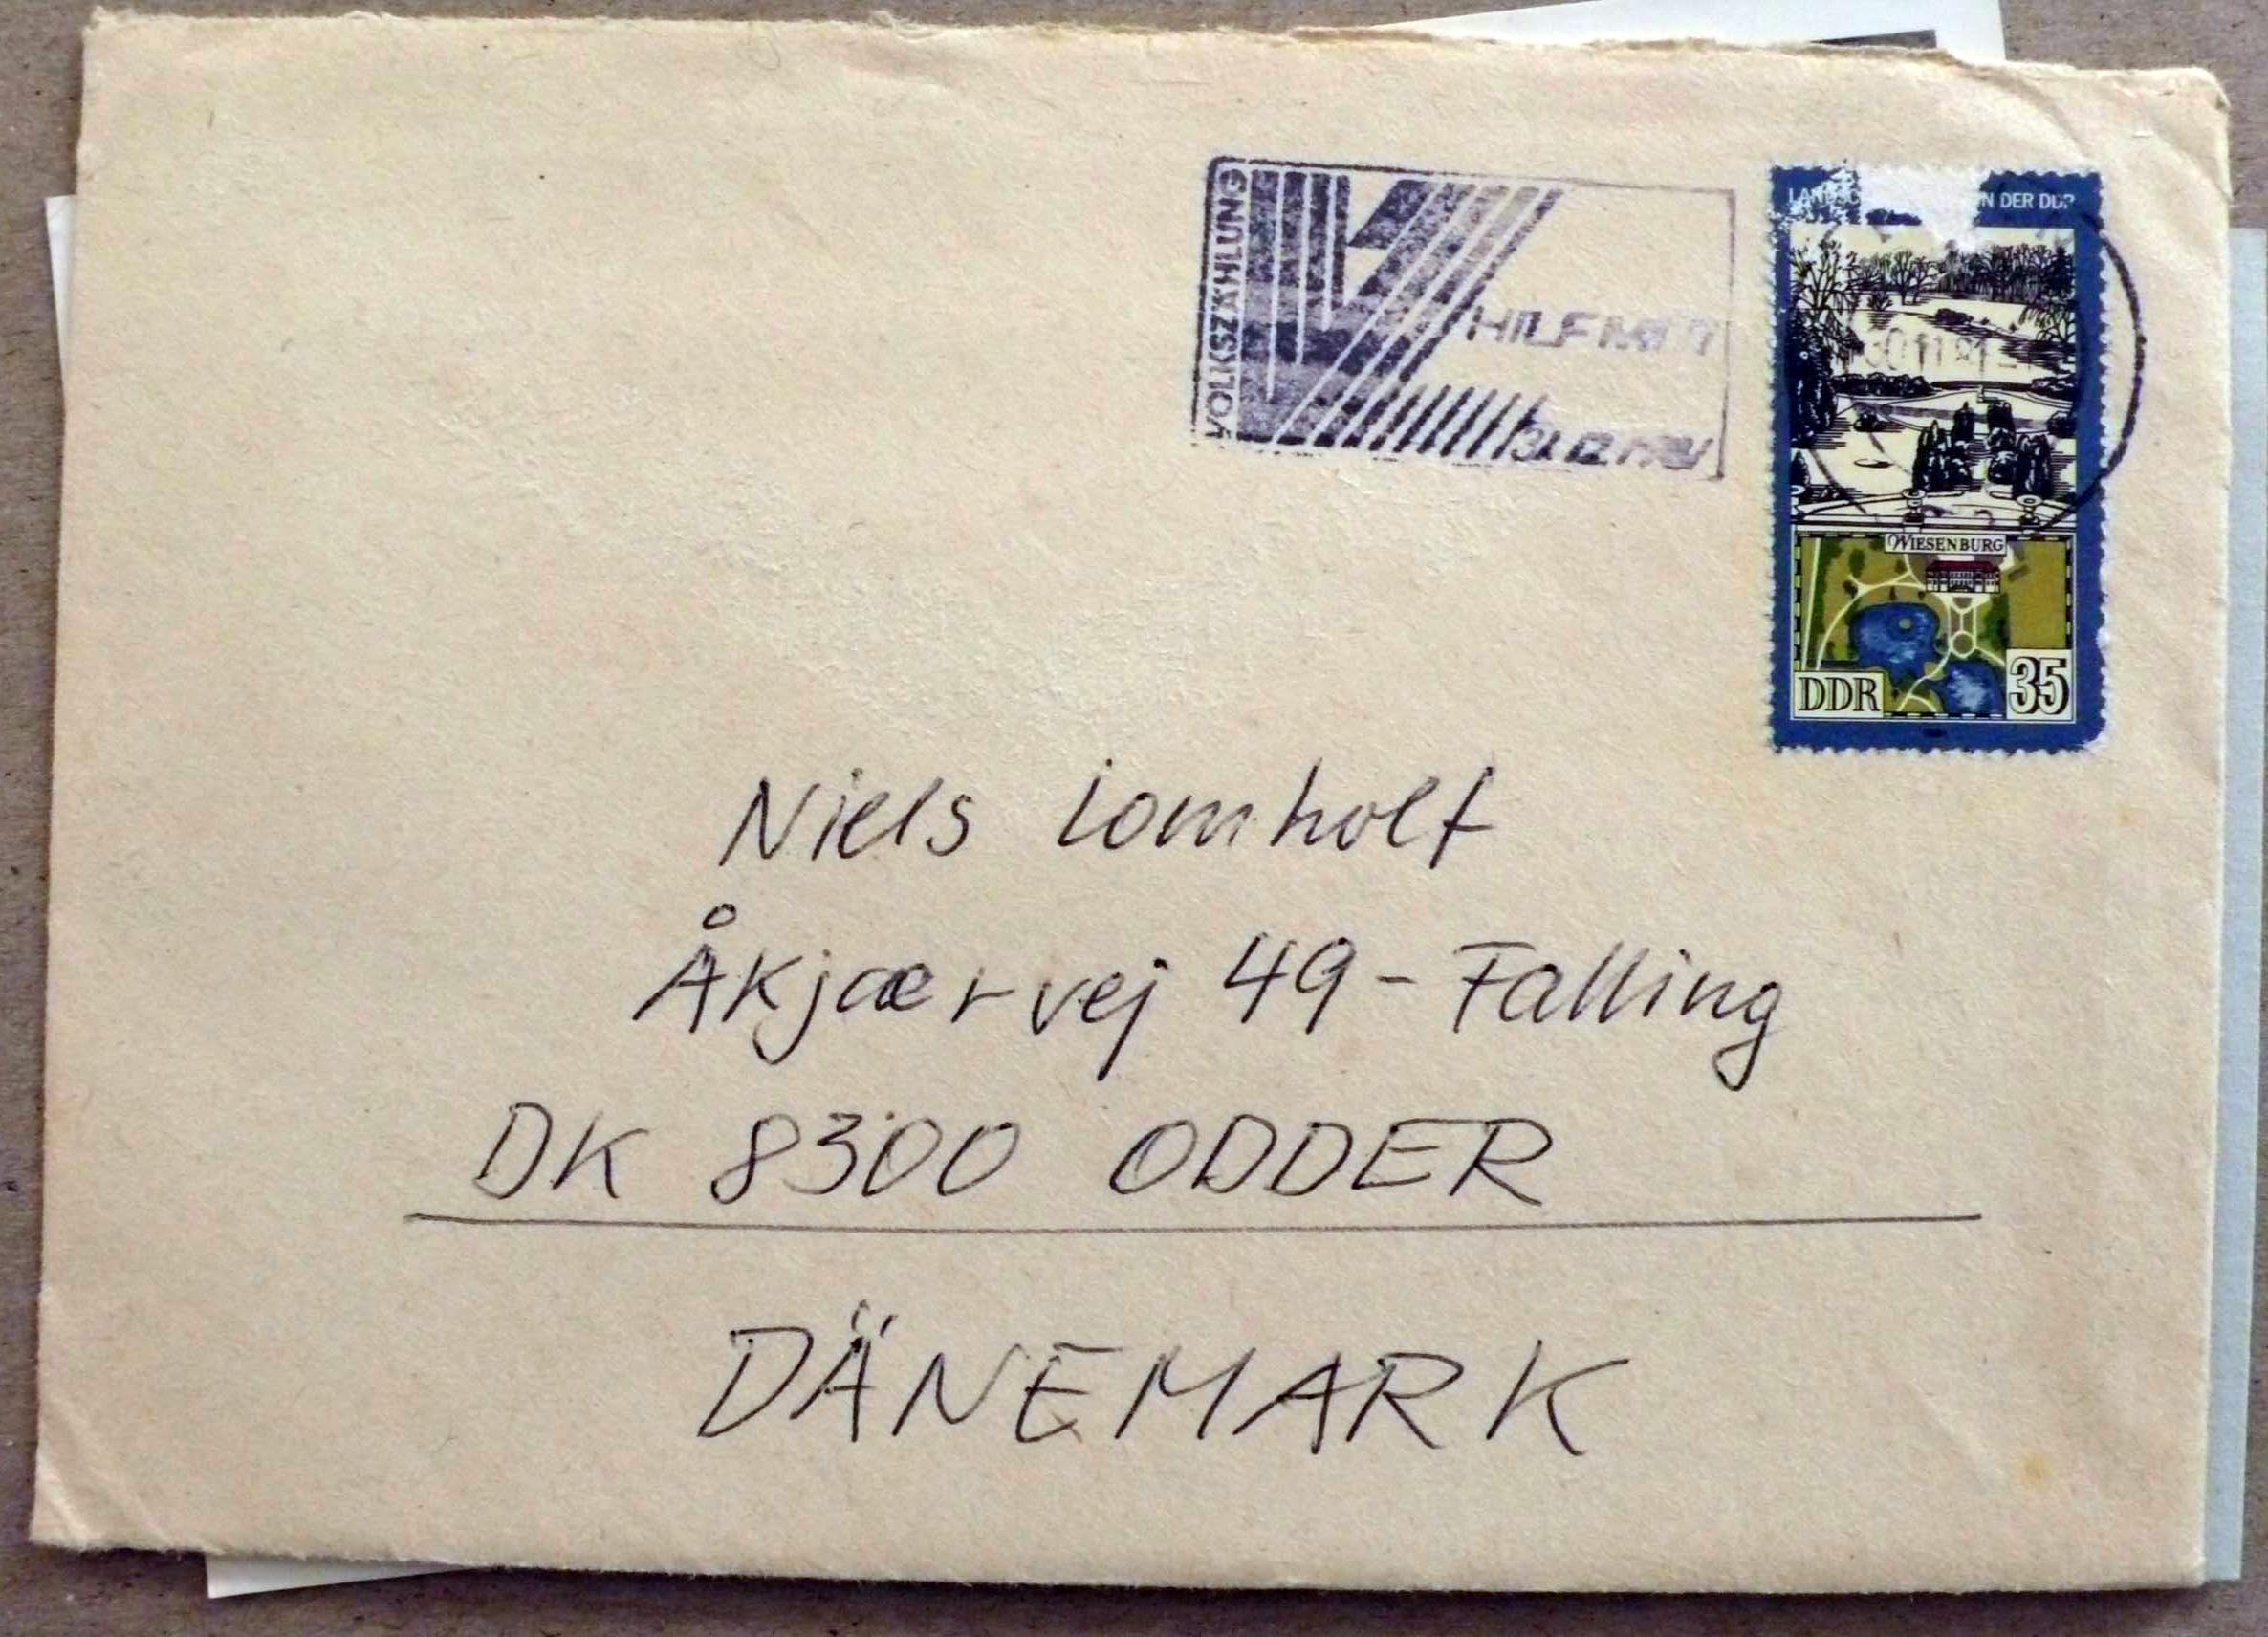 VOLKSZÄHLUNG
HILF MIT
31.12.1981
N DER DDR
30.11.81
WIESENBURG
DDR
35
Niels Lomholt
Åkjærvej 49 - Falling
DK 8300 ODDER
DÄNEMARK